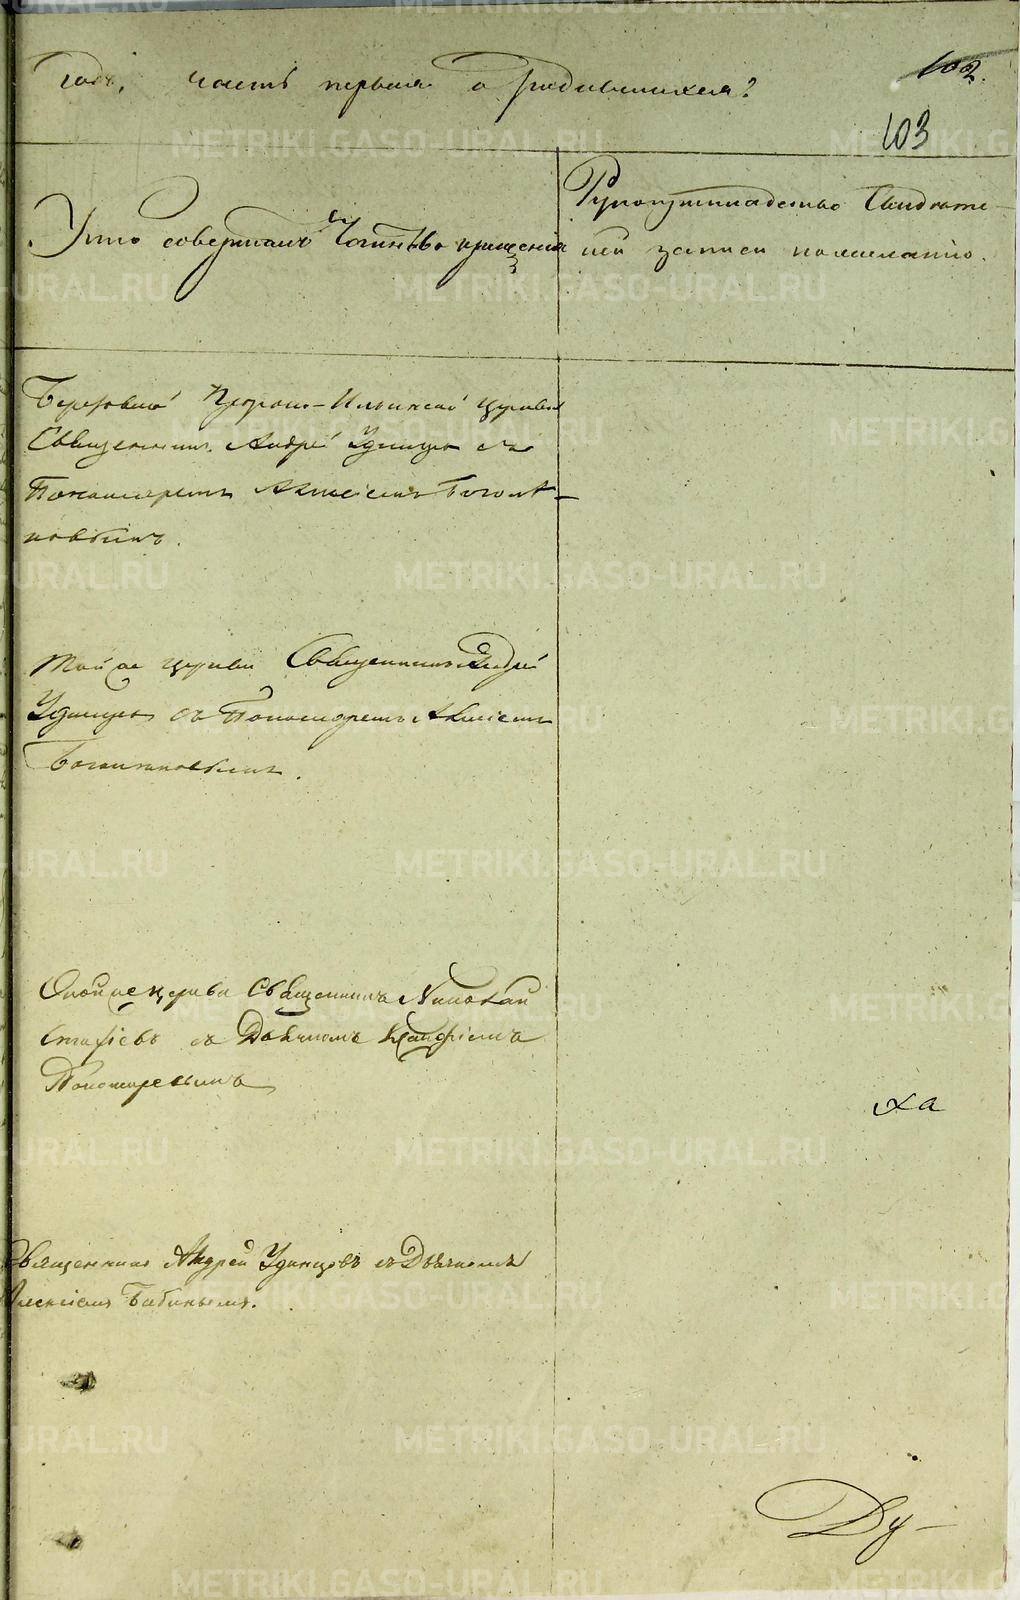 Годъ, часть первая о родившихся?
102.
103
Кто совершалъ Таинство крещенія
Рукоприкладство Свидѣте-
лей записи по желанію.
Березовской Пророко-Ильинской церкви
Священникъ Андрей Удинцевъ съ
Пономаремъ Алексіемъ Богом-
новымъ.
Той же церкви Священникъ Андрей
Удинцевъ съ Пономаремъ Алексіемъ
Оной же церкви Священникъ Николай
съ Дьячкомъ
Пономаревымъ
ха
Священникъ Андрей Удинцовъ съ Дьячкомъ
Алексіемъ Бабинымъ.
Ду-
METRIKI.GASO-URAL.RU